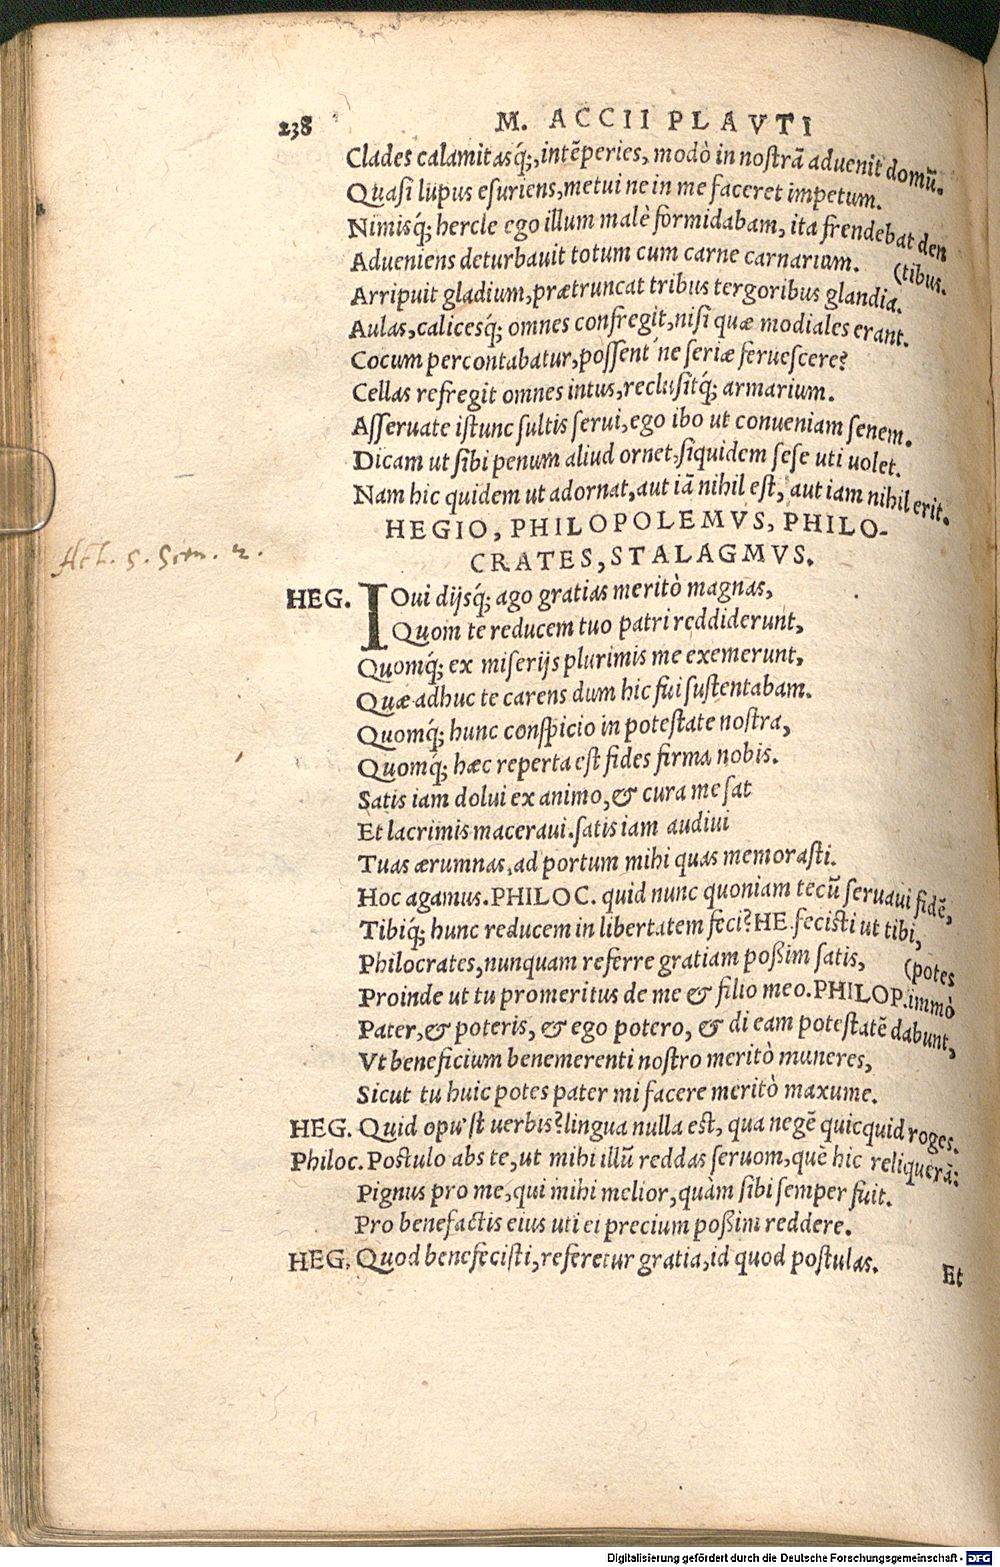 238 M. ACCII PLAVTI
Clades calamitasq́;, intẽperies, modò in nostrã aduenit domũ.
Quasi lupus esuriens, metui ne in me faceret impetum.
Nimisq́; hercle ego illum malè formidabam, ita frendebat den
(tibus.
Adueniens deturbauit totum cum carne carnarium.
Arripuit gladium, prætruncat tribus tergoribus glandia.
Aulas, calicesq́; omnes confregit, nisi quæ modiales erant.
Cocum percontabatur, possent'ne seriæ feruescere?
Cellas refregit omnes intus, reclusitq́; armarium.
Asseruate istunc sultis serui, ego ibo ut conueniam senem.
Dicam ut sibi penum aliud ornet, siquidem sese uti uolet.
Nam hic quidem ut adornat, aut iã nihil est, aut iam nihil erit.
HEGIO, PHILOPOLEMVS, PHILO-
CRATES, STALAGMVS.
Act. 5. Scen. 2.
HEG. IOui dijsq́; ago gratias meritò magnas,
Quom te reducem tuo patri reddiderunt,
Quomq́; ex miserijs plurimis me exemerunt,
Quæ adhuc te carens dum hic fui sustentabam.
Quomq́; hunc conspicio in potestate nostra,
Quomq́; hæc reperta est fides firma nobis.
Satis iam dolui ex animo, & cura me sat
Et lacrimis maceraui. satis iam audiui
Tuas ærumnas, ad portum mihi quas memorasti.
Hoc agamus. PHILOC. quid nunc quoniam tecũ seruaui fidẽ,
Tibiq́; hunc reducem in libertatem feci? HE. fecisti ut tibi,
Philocrates, nunquam referre gratiam poßim satis,
(potes
Proinde ut tu promeritus de me & filio meo. PHILOP. immò
Pater, & poteris, & ego potero, & di eam potestatẽ dabunt,
Vt beneficium benemerenti nostro meritò muneres,
Sicut tu huic potes pater mi facere meritò maxume.
HEG. Quid opu'st uerbis? lingua nulla est, qua negẽ quicquid roges.
Philoc. Postulo abs te, ut mihi illũ reddas seruom, quẽ hic reliquerã:
Pignus pro me, qui mihi melior, quàm sibi semper fuit.
Pro benefactis eius uti ei precium poßim reddere.
HEG. Quod benefecisti, referetur gratia, id quod postulas.
Et
Digitalisierung gefördert durch die Deutsche Forschungsgemeinschaft - DFG